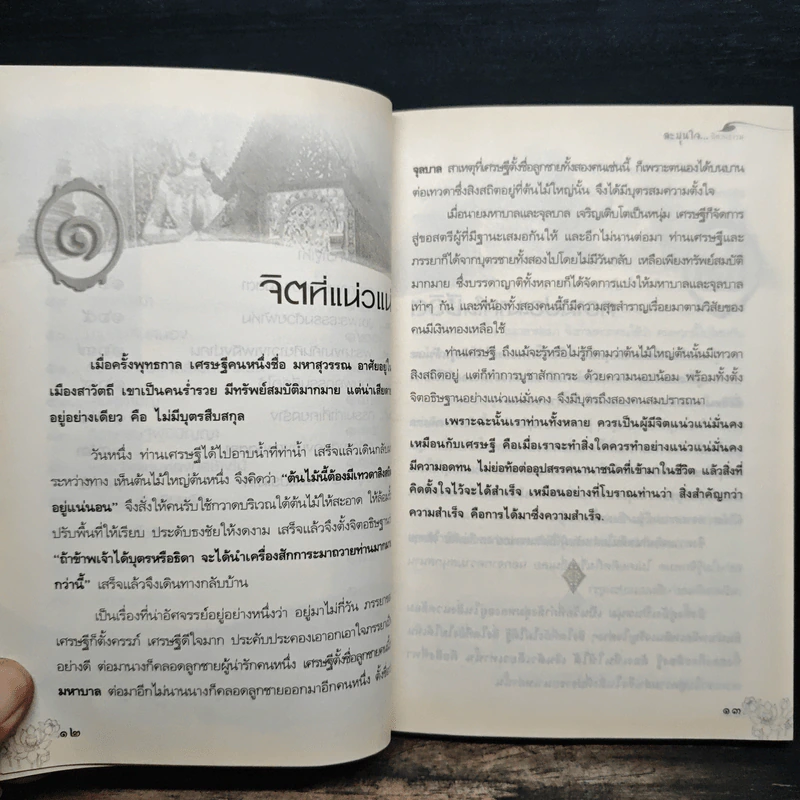 ๑
จิตที่แน่วแน่
เมื่อครั้งพุทธกาล เศรษฐีคนหนึ่งชื่อ มหาสุวรรณ อาศัยอยู่
เมืองสาวัตถี เขาเป็นคนร่ำรวย มีทรัพย์สมบัติมากมาย แต่น่าเสียดาย
อยู่อย่างเดียว คือ ไม่มีบุตรสืบสกุล
วันหนึ่ง ท่านเศรษฐีได้ไปอาบน้ำที่ท่าน้ำ เสร็จแล้วเดินกลับ
ระหว่างทาง เห็นต้นไม้ใหญ่ต้นหนึ่ง จึงคิดว่า “ต้นไม้นี้ต้องมีเทวดาสิงสถิต
อยู่แน่นอน” จึงสั่งให้คนรับใช้กวาดบริเวณใต้ต้นไม้ให้สะอาด ให้ล้อม
ปรับพื้นที่ให้เรียบ ประดับธงชัยให้งดงาม เสร็จแล้วจึงตั้งจิตอธิษฐาน
“ถ้าข้าพเจ้าได้บุตรหรือธิดา จะได้นำเครื่องสักการะมาถวายท่านมากมาย
กว่านี้” เสร็จแล้วจึงเดินทางกลับบ้าน
เป็นเรื่องที่น่าอัศจรรย์อยู่อย่างหนึ่งว่า อยู่มาไม่กี่วัน ภรรยาของ
เศรษฐีก็ตั้งครรภ์ เศรษฐีดีใจมาก ประคับประคองเอาอกเอาใจภรรยา
อย่างดี ต่อมานางก็คลอดลูกชายผู้น่ารักคนหนึ่ง เศรษฐีตั้งชื่อลูกคนนี้
มหาบาล ต่อมาอีกไม่นานนางก็คลอดลูกชายออกมาอีกคนหนึ่ง ตั้งชื่อ
๑๒
สะมุนใจ...
จุลบาล สาเหตุที่เศรษฐีตั้งชื่อลูกชายทั้งสองคนเช่นนี้ ก็เพราะตนเองได้บนบาน
ต่อเทวดาซึ่งสิงสถิตอยู่ที่ต้นไม้ใหญ่นั้น จึงได้มีบุตรสมความตั้งใจ
เมื่อนายมหาบาลและจุลบาล เจริญเติบโตเป็นหนุ่ม เศรษฐีก็จัดการ
สู่ขอสตรีผู้ที่มีฐานะเสมอกันให้ และอีกไม่นานต่อมา ท่านเศรษฐีและ
ภรรยาก็ได้จากบุตรชายทั้งสองไปโดยไม่มีวันกลับ เหลือเพียงทรัพย์สมบัติ
มากมาย ซึ่งบรรดาญาติทั้งหลายก็ได้จัดการแบ่งให้มหาบาลและจุลบาล
เท่าๆ กัน และพี่น้องทั้งสองคนนี้ก็มีความสุขสำราญเรื่อยมาตามวิสัยของ
คนมีเงินทองเหลือใช้
ท่านเศรษฐี ถึงแม้จะรู้หรือไม่รู้ก็ตามว่าต้นไม้ใหญ่ต้นนั้นมีเทวดา
สิงสถิตอยู่ แต่ก็ทำการบูชาสักการะ ด้วยความนอบน้อม พร้อมทั้งตั้ง
จิตอธิษฐานอย่างแน่วแน่มั่นคง จึงมีบุตรถึงสองคนสมปรารถนา
เพราะฉะนั้นเราท่านทั้งหลาย ควรเป็นผู้มีจิตแน่วแน่มั่นคง
เหมือนกับเศรษฐี คือเมื่อเราจะทำสิ่งใดควรทำอย่างแน่วแน่มั่นคง
มีความอดทน ไม่ย่อท้อต่ออุปสรรคนานาชนิดที่เข้ามาในชีวิต แล้วสิ่งที่
คิดตั้งใจไว้จะได้สำเร็จ เหมือนอย่างที่โบราณท่านว่า สิ่งสำคัญกว่า
ความสำเร็จ คือการได้มาซึ่งความสำเร็จ.
๑๓